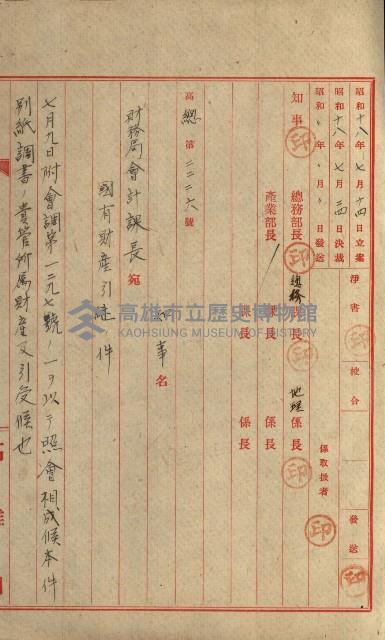 昭和十八年七月十四日立案 淨書 印 校合 發送 印
昭和十八年七月 日決裁
昭和 年 月 日發送 係取扱者 印
知事 印 總務部長 印 總務課長 印 地理係長 印
產業部長 課長 係長
課長 係長
高總第二二二六號
知事名
財務局會計課長 宛
國有財產引繼 件
七月九日附會調第一二九七號ノ一ヲ以テ照會相成候本件
別紙調書ノ貴管所屬財產又引受候也
高雄市立歷史博物館
KAOHSIUNG MUSEUM OF HISTORY
高雄州